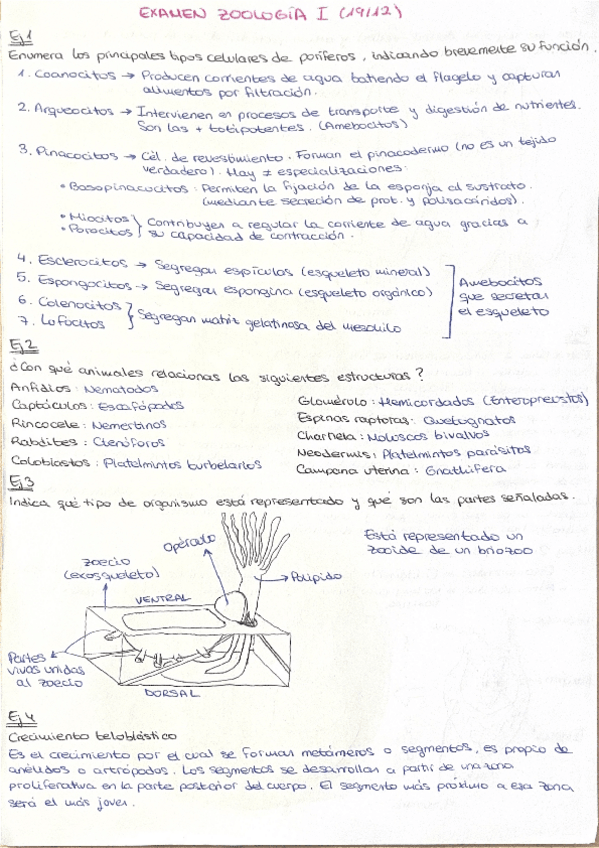 EXAMEN ZOOLOGÍA I (19/12)
Ej 1
Enumera los principales tipos celulares de poríferos, indicando brevemente su función.
1. Coanocitos → Producen corrientes de agua batiendo el flagelo y capturan
alimentos por filtración.
2. Arqueocitos → Intervienen en procesos de transporte y digestión de nutrientes.
Son las + totipotentes. (Amebocitos)
3. Pinacocitos → Cél. de revestimiento. Forman el pinacodermo (no es un tejido
verdadero). Hay ≠ especializaciones:
• Basopinacocitos: Permiten la fijación de la esponja al sustrato.
(mediante secreción de prot. y polisacáridos).
• Miocitos } Contribuyen a regular la corriente de agua gracias a
• Porocitos } su capacidad de contracción.
4. Esclerocitos → Segregan espículas (esqueleto mineral)
5. Espongocitos → Segregan espongina (esqueleto orgánico)
6. Colenocitos } Segregan matriz gelatinosa del mesohilo
7. Lofocitos
Amebocitos
que secretan
el esqueleto
Ej 2
¿Con qué animales relacionas las siguientes estructuras?
Anfidios: Nematodos
Captáculos: Escafópodos
Rincocele: Nemertinos
Rabdites: Ctenóforos
Coloblastos: Platelmintos turbelarios
Glomérulo: Hemicordados (Enteropneustos)
Espinas raptoras: Quetognatos
Charnela: Moluscos bivalvos
Neodermis: Platelmintos parásitos
Campana uterina: Gnathifera
Ej 3
Indica qué tipo de organismo está representado y qué son las partes señaladas.
Opérculo
zoecio
(exosqueleto)
Polípido
VENTRAL
Partes
vivas unidas
al zoecio
DORSAL
Está representado un
zooide de un briozoo
Ej 4
Crecimiento teloblástico
Es el crecimiento por el cual se forman metámeros o segmentos, es propio de
anélidos o artrópodos. Los segmentos se desarrollan a partir de una zona
proliferativa en la parte posterior del cuerpo. El segmento más próximo a esa zona
será el más joven.